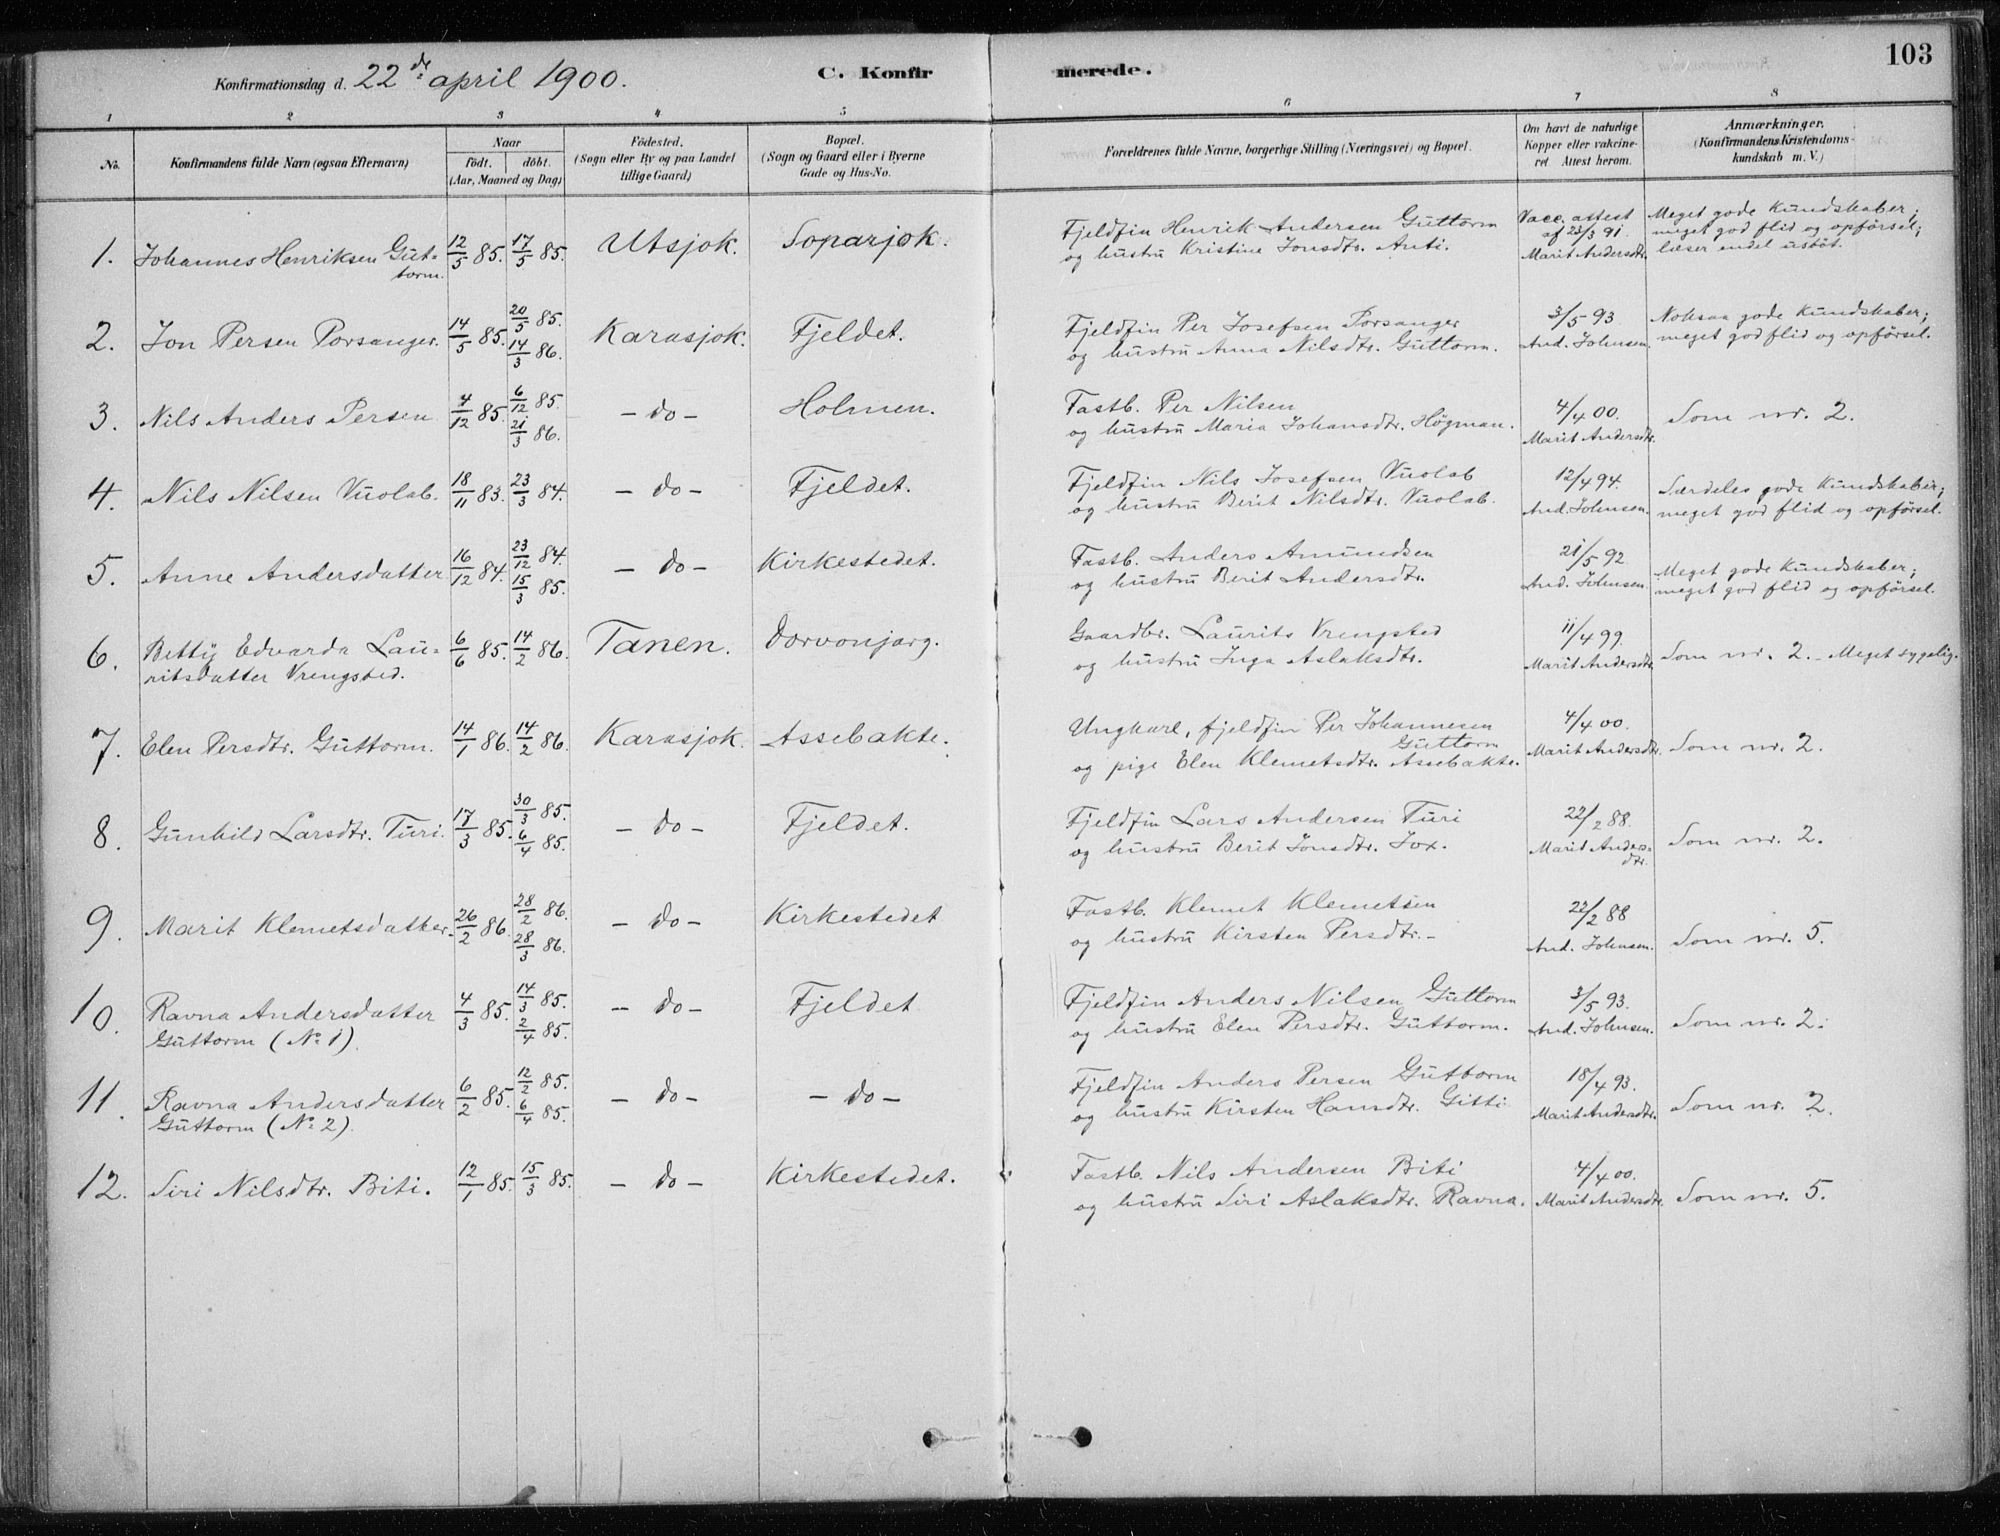 103
Konfirmationsdag d. 22de april 1900.
C. Konfirmerede.
1 2 3 4 5 6 7 8
No.
Konfirmandens fulde Navn (ogsaa Efternavn)
Naar
födt. döbt.
(Aar, Maaned og Dag)
Födested.
(Sogn eller By og paa Landet
tillige Gaard)
Bopæl.
(Sogn og Gaard eller i Byerne
Gade og Hus-No.
Forældrenes fulde Navne, borgerlige Stilling (Næringsvei) og Bopæl.
Om havt de naturlige
Kopper eller vakcine-
ret Attest herom.
Anmærkninger.
(Konfirmandens Kristendoms-
kundskab m. V.)
1. Johannes Henriksen Gut-
torm. 12/5 85. 17/5 85. Utsjok. Soparjok.
Fjeldfin Henrik Andersen Guttorm
og hustru Kristine Jonsdtr. Anti.
Vacc. attest
af 23/3 91.
Marit Andersdtr.
Meget gode kundskaber;
meget god flid og opförsel;
læser endel ustöt.
2. Jon Persen Porsanger. 14/5 85. 20/5 85. 14/3 86. Karasjok. Fjeldet.
Fjeldfin Per Josefsen Porsanger
og hustru Anna Nilsdtr. Guttorm.
3/5 93
And. Johnsen.
Noksaa gode kundskaber;
meget god flid og opförsel.
3. Nils Anders Persen 4/12 85. 6/12 85. 21/3 86. - do - Holmen.
Fastb. Per Nilsen
og hustru Maria Johansdtr. Högman.
4/4 00.
Marit Andersdtr.
Som nr. 2.
4. Nils Nilsen Vuolab. 18/11 83. 23/3 84. - do - Fjeldet.
Fjeldfin Nils Josefsen Vuolab
og hustru Berit Nilsdtr. Vuolab.
12/4 94.
And. Johnsen.
Særdeles gode kundskaber;
meget god flid og opförsel.
5. Anne Andersdatter 16/12 84. 23/12 84. 15/3 85. - do - Kirkestedet.
Fastb. Anders Amundsen
og hustru Berit Andersdtr.
21/5 92.
And. Johnsen.
Meget gode kundskaber;
meget god flid og opförsel.
6. Betty Edvarda Lau-
ritsdatter Vrengsted. 6/6 85. 14/2 86. Tanen. Dorvonjarg.
Gaardbr. Laurits Vrengsted
og hustru Inga Aslaksdtr.
11/4 99.
Marit Andersdtr.
Som nr. 2. - Meget sygelig.
7. Elen Persdtr. Guttorm. 14/1 86. 14/2 86. Karasjok. Assebakte.
Ungkarl, fjeldfin Per Johannesen
Guttorm
og pige Elen Klemetsdtr. Assebakte.
4/4 00.
Marit Andersdtr.
Som nr. 2.
8. Gunhild Larsdtr. Turi. 17/3 85. 30/3 85. 6/4 85. - do - Fjeldet.
Fjeldfin Lars Andersen Turi
og hustru Berit Jonsdtr. Jox.
22/2 88.
Marit Anders-
dtr.
Som nr. 2.
9. Marit Klemetsdatter. 26/2 86. 28/2 86. 28/3 86. - do - Kirkestedet
Fastb. Klemet Klemetsen
og hustru Kirsten Persdtr. -
22/2 88
And. Johnsen.
Som nr. 5.
10. Ravna Andersdatter
Guttorm (No 1). 4/3 85. 14/3 85. 2/4 85. - do - Fjeldet
Fjeldfin Anders Nilsen Guttorm
og hustru Elen Persdtr. Guttorm.
3/5 93.
And. Johnsen.
Som nr. 2.
11. Ravna Andersdatter
Guttorm (No 2). 6/2 85. 12/2 85. 6/4 85. - do - - do -
Fjeldfin Anders Persen Guttorm
og hustru Kirsten Hansdtr. Gitti
18/4 93.
Marit Andersdtr.
Som nr. 2.
12. Siri Nilsdtr. Biti. 12/1 85. 15/3 85. - do - Kirkestedet.
Fastb. Nils Andersen Biti
og hustru Siri Aslaksdtr. Ravna.
4/4 00.
Marit Andersdtr.
Som nr. 5.